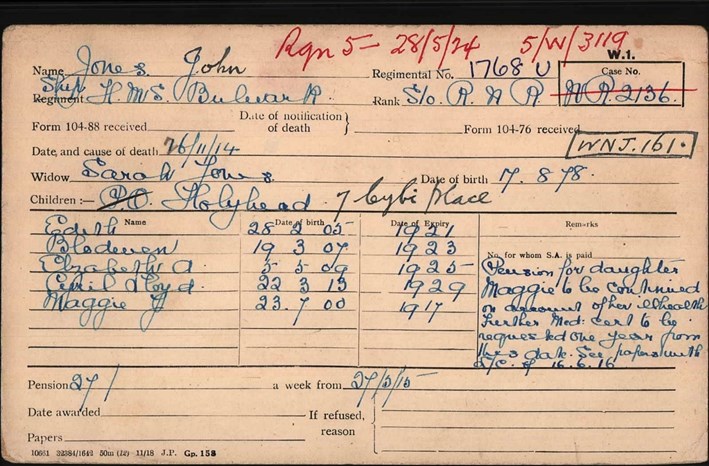 Rgn 5 - 28/5/24 5/W/3119
W.1.
Name Jones John Regimental No. 1768 U Case No.
Ship
Regiment H.M.S. Bulwark Rank S/o. R.N.R. N.P. 2136.
Form 104-88 received Date of notification of death Form 104-76 received
WNJ.161.
Date, and cause of death 26/11/14
Widow Sarah Jones Date of birth 7. 8 78.
Children :— Holyhead 7 Cybi Place
Name Date of birth Date of Expiry Remarks
Edith 28 2 05 1921
Blodewen 19 3 07 1923 No. for whom S.A. is paid
Elizabeth A. 5 5 09 1925 Pension for daughter
Cyril Lloyd. 22 3 13 1929 Maggie to be continued
Maggie J 23. 7 00 1917 on account of her illhealth
Further Med: cert to be
requested one year from
this date. See papers with
of 16.6.16
Pension 27/ a week from 27/5/15
Date awarded If refused, reason
Papers
10661 32384/1641 50m (12) 11/18 J.P. Gp. 153